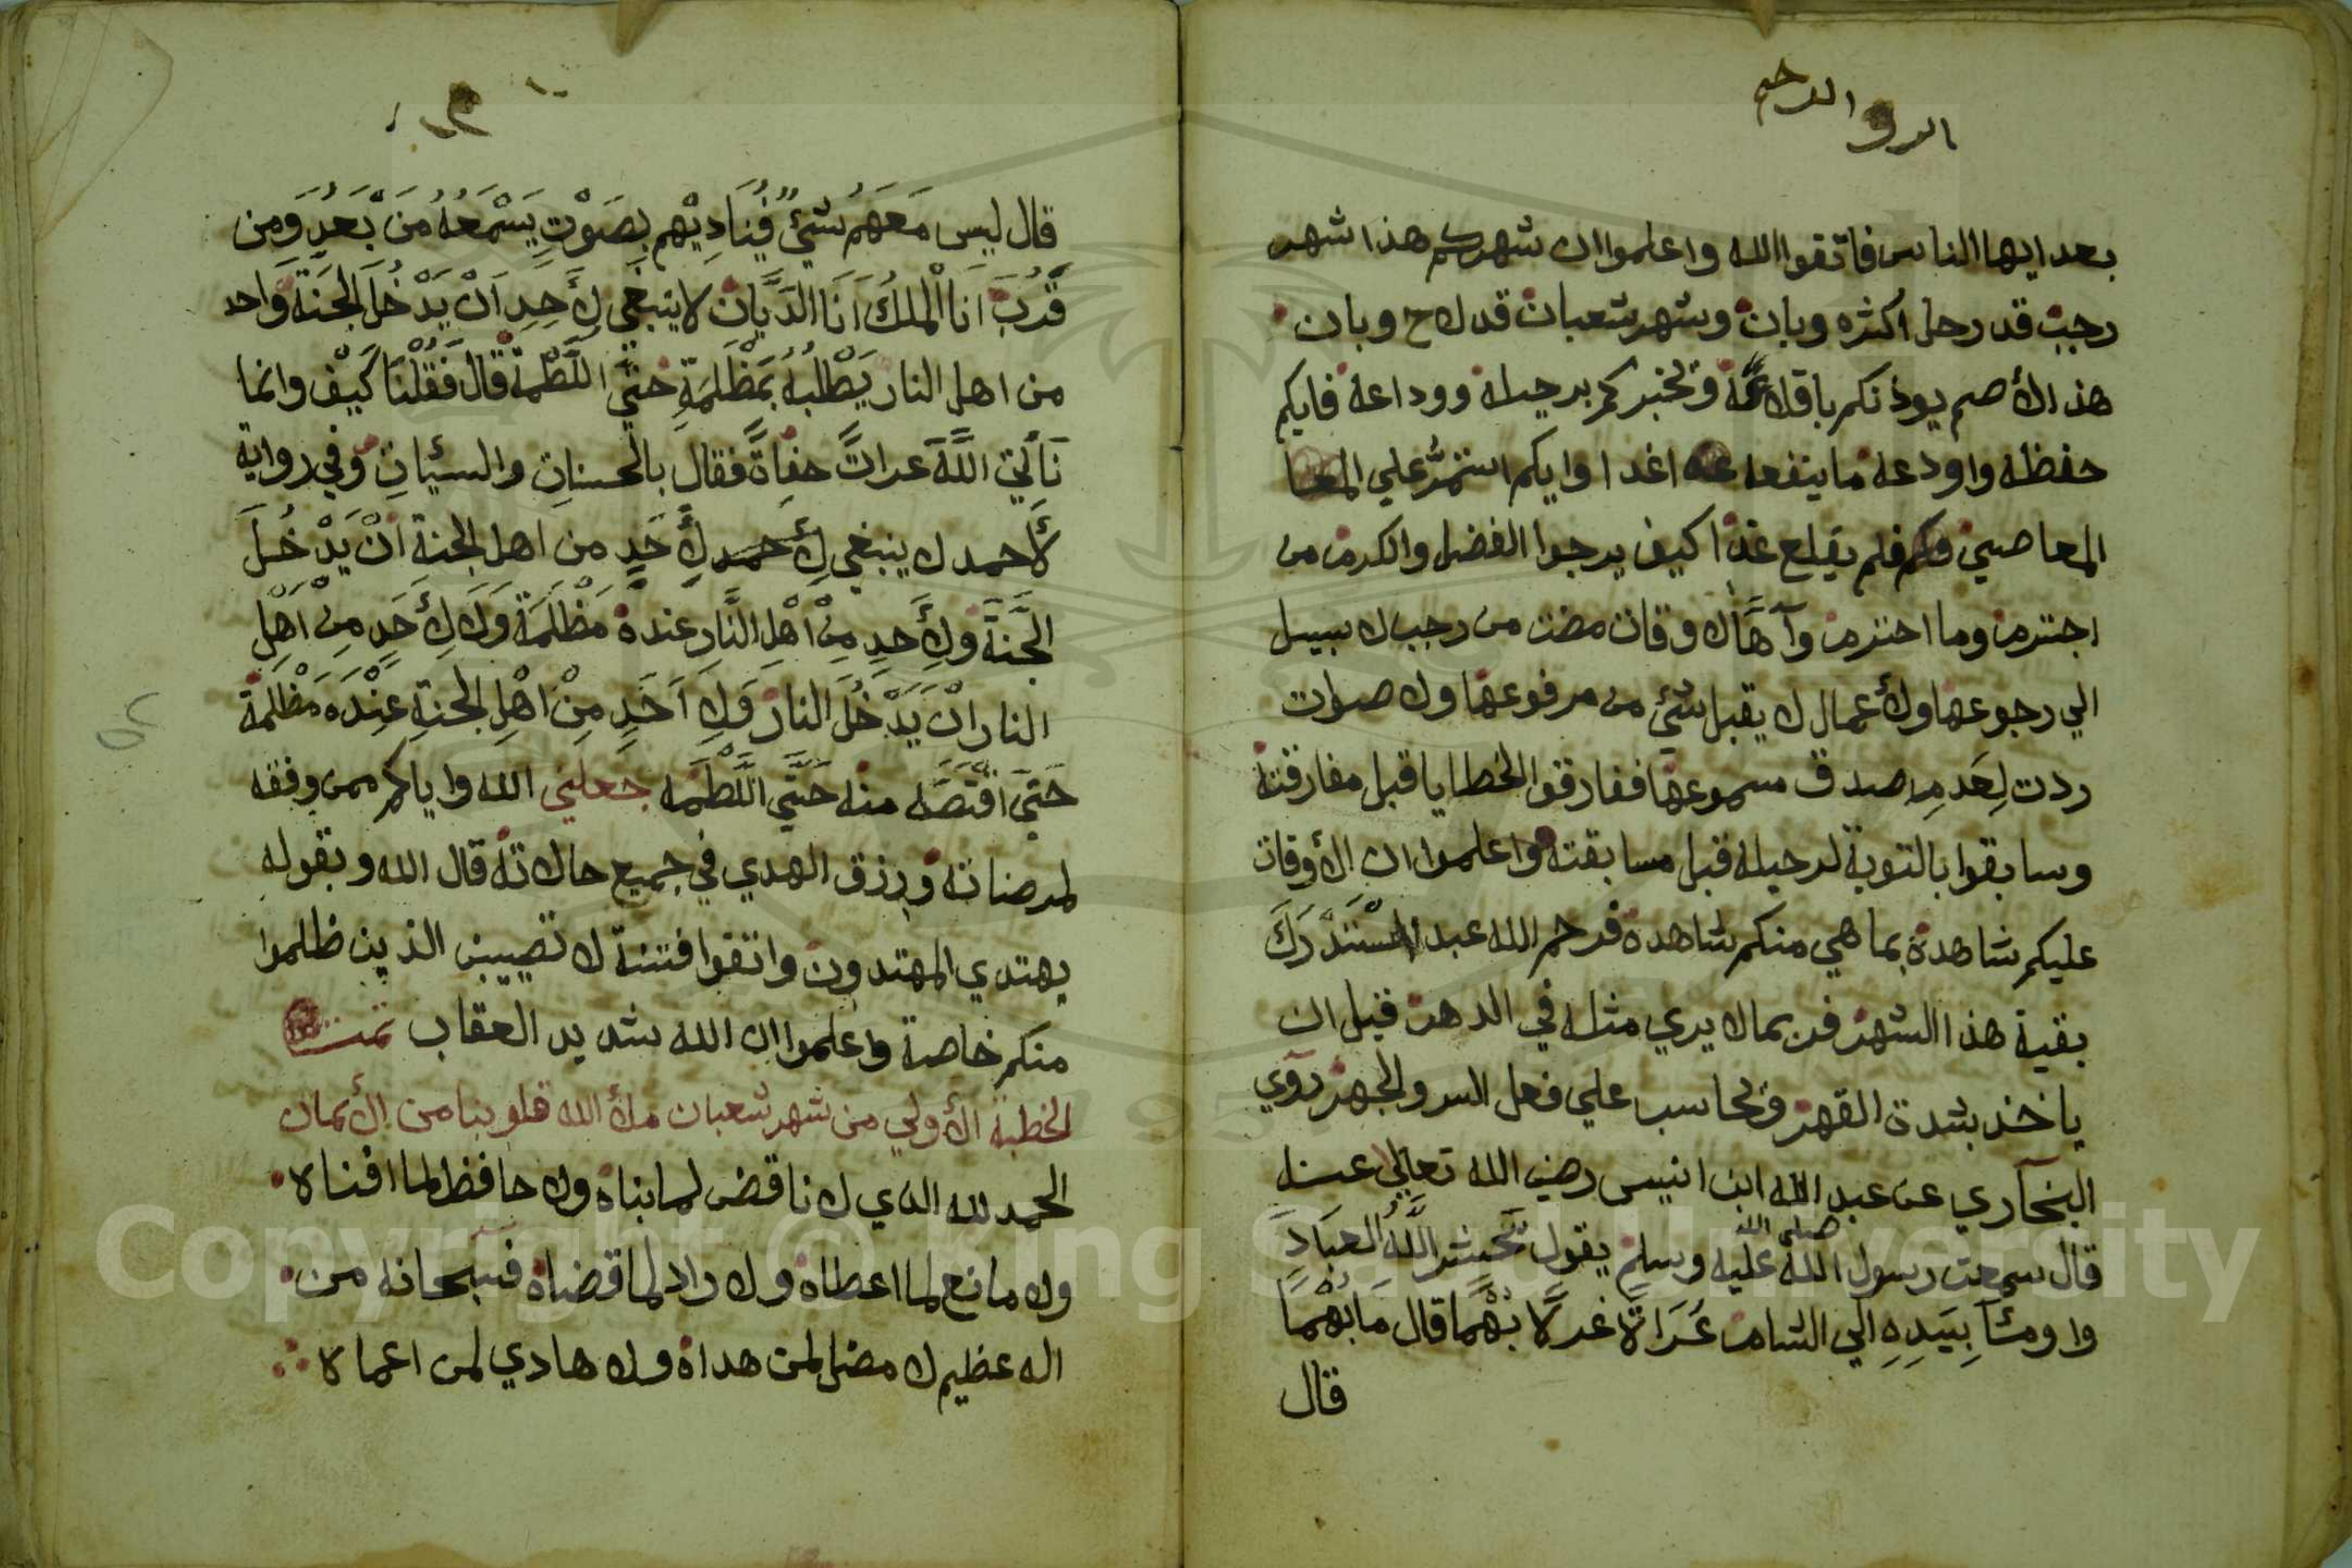 بعد ايها الناس فاتقوا الله واعلموا ان شهركم هذا شهر
رجب قد رحل اكثره وبان وشهر شعبان قد لاح وبان
هذا الأصم يوذنكم باقلاعه ويخبركم برحيله ووداعه فايكم
حفظه واودعه ما ينفعه غدا وايكم استمر علي المعا
المعاصي فلم يقلع غدا كيف يرجوا الفضل والكرم من
اجترم وما احترم وآهًا لاوقات مضت من رجب لا سبيل
الي رجوعها ولأعمال لا يقبل شئ من مرفوعها ولاصوات
ردت لِعَدمِ صدق مسموعها ففارقوا الخطايا قبل مفارقته
وسابقوا بالتوبة لرحيله قبل مسابقته واعلموا ان الأوقات
عليكم شاهدة بما هي منكم شاهدة فرحم الله عبدا استدرك
بقية هذا الشهر فربما لا يري مثله في الدهر قبل ان
ياخذ بشدة القهر ويحاسب علي فعل السر والجهر روي
البخاري عن عبد الله ابن انيس رضي الله تعالي عنه
قال سمعت رسول الله صلى الله عليه وسلم يقول يحشر اللَّهُ العبادَ
واومئا بِيَدِهِ الي الشام عَرَاةً غرلًا بُهْمًا قال مَا بُهْمًا
قال
قال ليس مَعَهُم شئٌ فُيَنَادِيْهم بِصَوْتٍ يَسْمَعُهُ مَنَ بَّعَدُ وَمن
قَرُبَ انَا الملكُ اَنَا الدَيَّان لا ينبغي لِأَحَدٍ اَنْ يَدْخُلَ الجَنَةَ وَاحد
من اهل النار يَطْلبُهُ بمَظْلَمَةٍ حتَّي اللَّطْمَة قَالَ فَقُلْنَا كَيْف وانما
نَأتي اللَّهَ عراتً حفاةً فقال بالحسناتِ والسيئاتِ وفي رواية
لأحمد لا ينبغي لِأَحَدٍ من اهل الجنة اَنْ يَدْخُلَ
الجَنَّةَ وَلِأَحدٍ مِنْ اَهْلِ النَّارِ عنده مَظْلَمَة وَلَا لِأَحَدٍ مِنْ اَهْلِ
النار اَنْ يَدْخُلَ النار وَلِاَحَدٍ مِنْ اَهْلِ الجنةِ عِنْدَه مَظْلَمَة
حَتيَ اَقْتَصَّه منه حَتَّي اللَّطْمَه جعلني الله واياكم ممن وفقه
لمرضاته ورزق الهدي في جميع حالاته قال الله وبقوله
يهتدي المهتدون واتقوا فتنة لا تصيبن الذين ظلموا
منكم خاصة واعلموا ان الله شديد العقاب تمت
الخطبة الأولي من شهر شعبان ملأ الله قلوبنا من الأيمان
الحمد لله الذي لا ناقض لما بناه ولا حافظ لما افناه
ولا مانع لما اعطاه ولا راد لما قضاه فسبحانه من
اله عظيم لا مضل لمن هداه ولا هادي لمن اعماه
Copyright © King Saud University